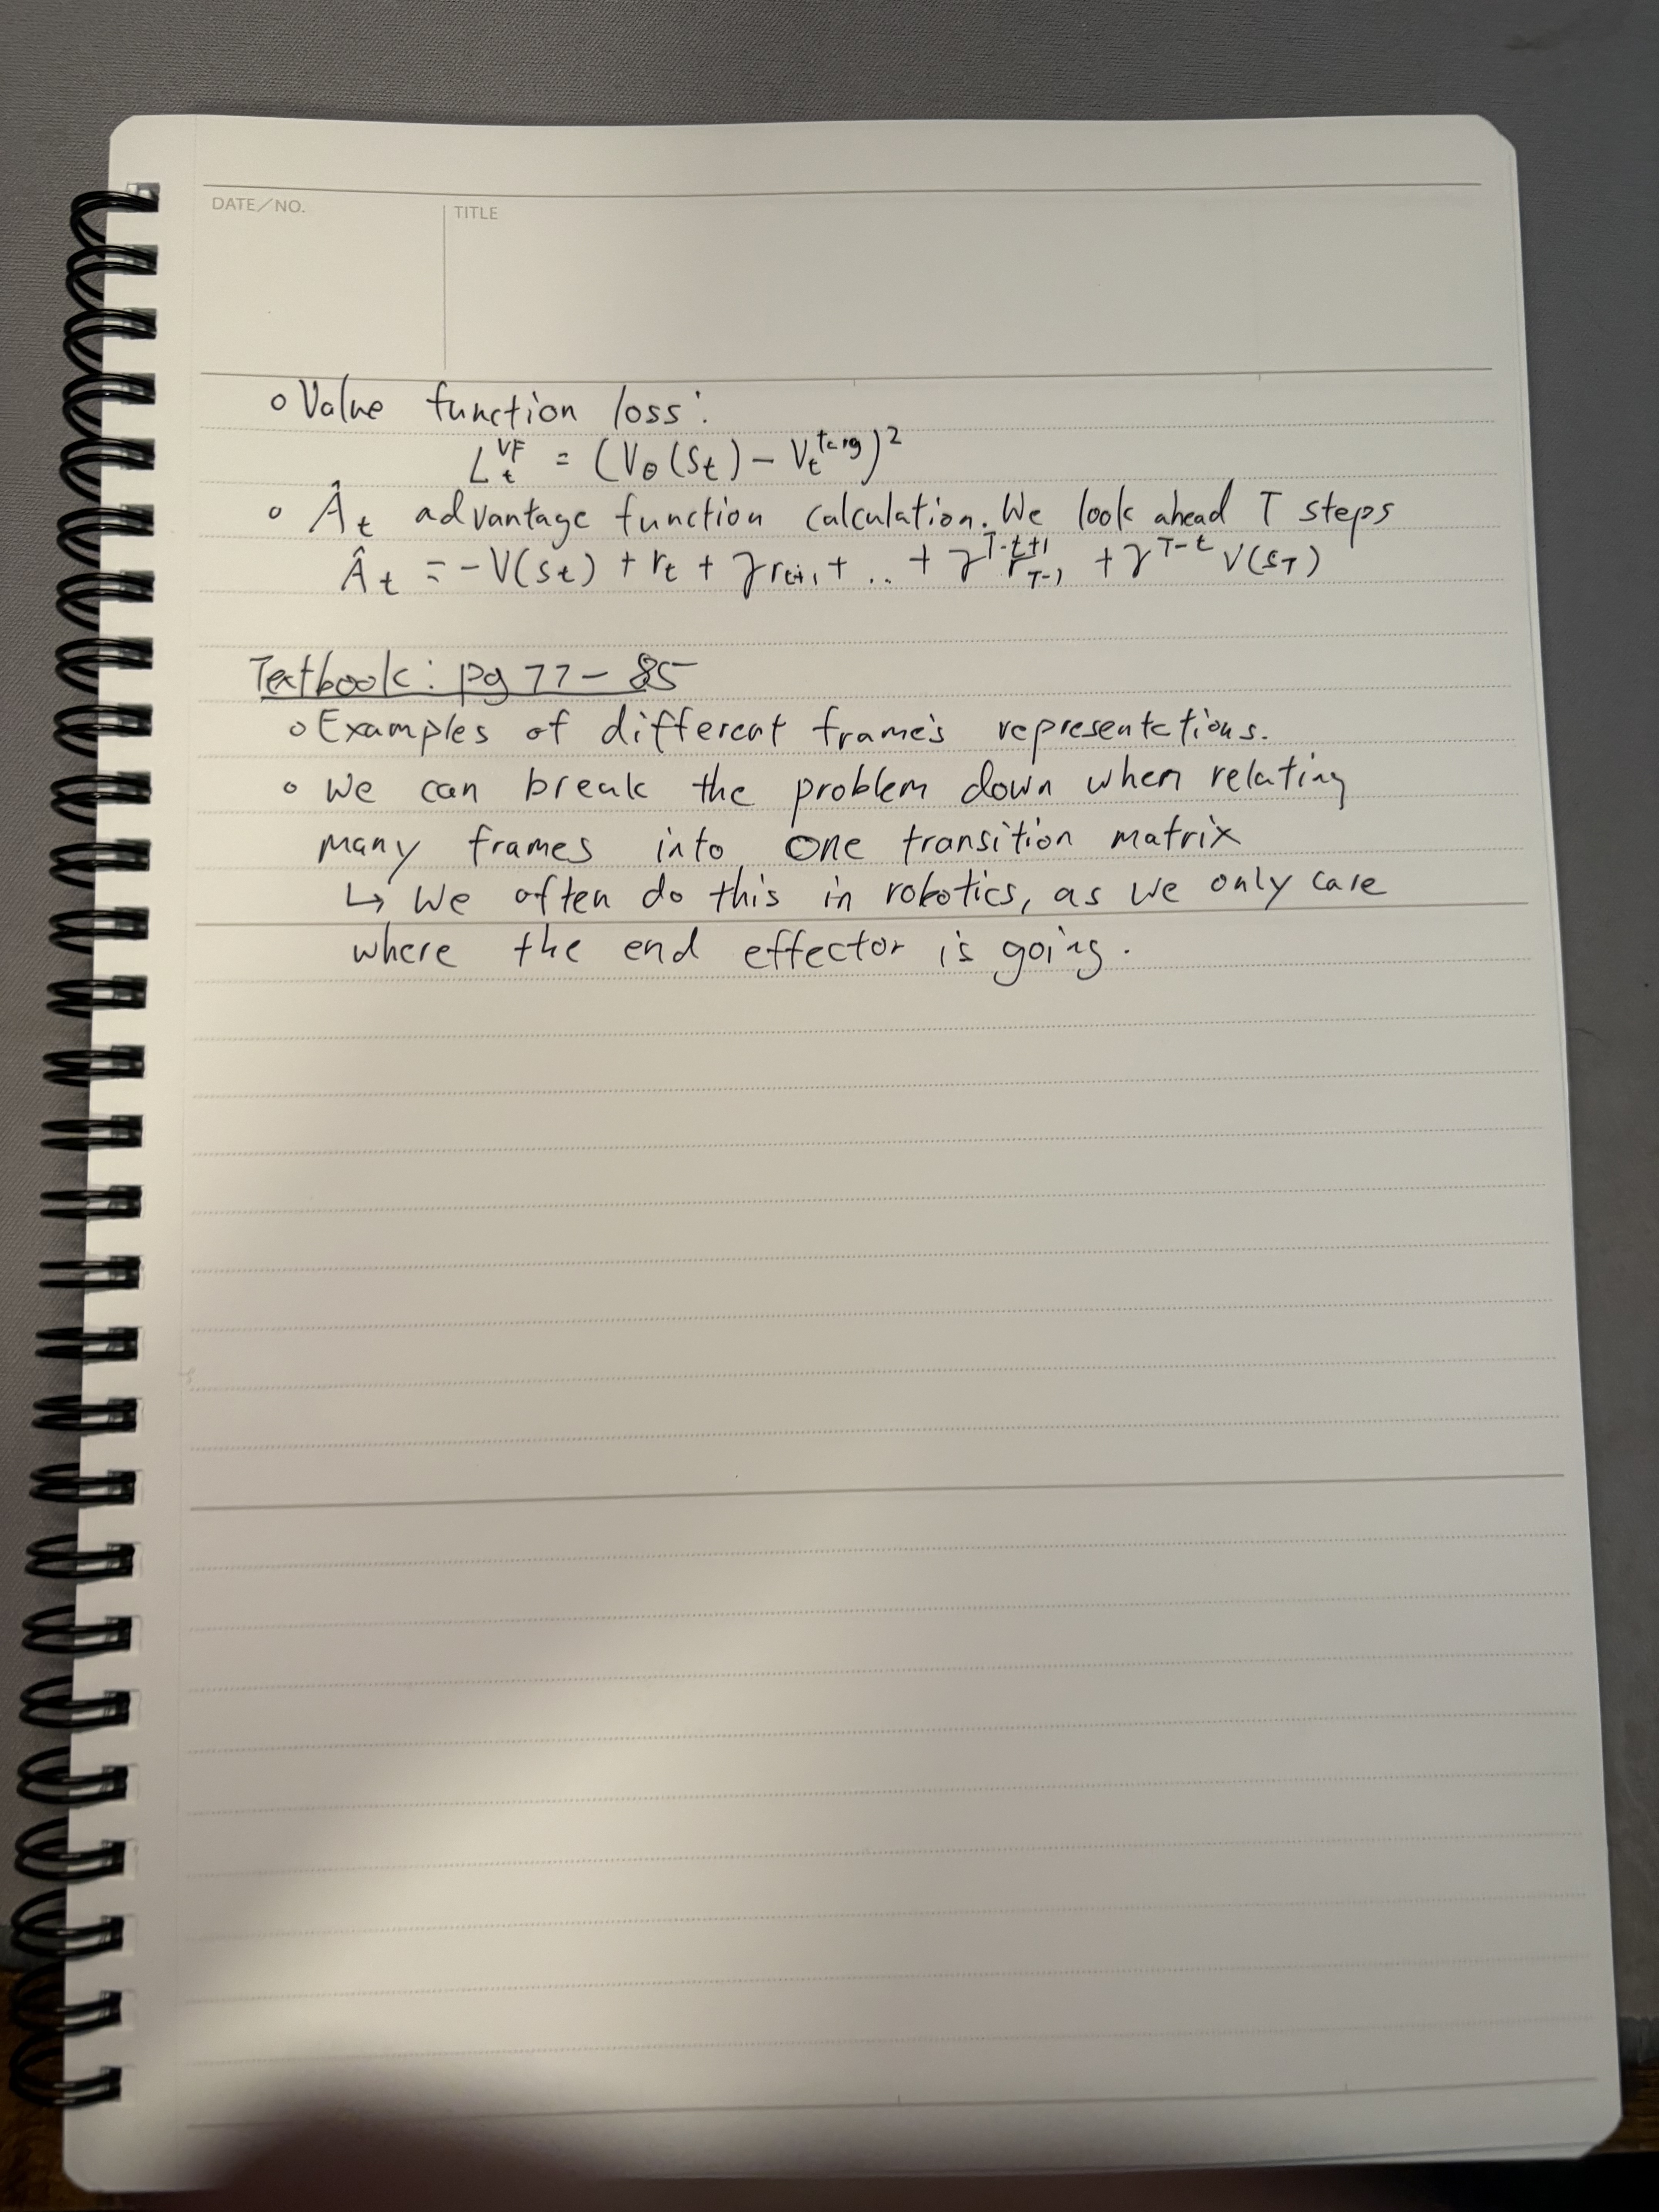 DATE/NO.
TITLE
○ Value function loss:
L_t^VF = (V_θ(S_t) - V_t^targ)^2
○ Â_t advantage function calculation. We look ahead T steps
Â_t = -V(s_t) + r_t + γr_t+1 + .. + γ^T-t+1 r_T-1 + γ^T-t V(s_T)
Textbook: pg 77-85
○ Examples of different frame's representations.
○ We can break the problem down when relating
many frames into one transition matrix
↳ We often do this in robotics, as we only care
where the end effector is going.